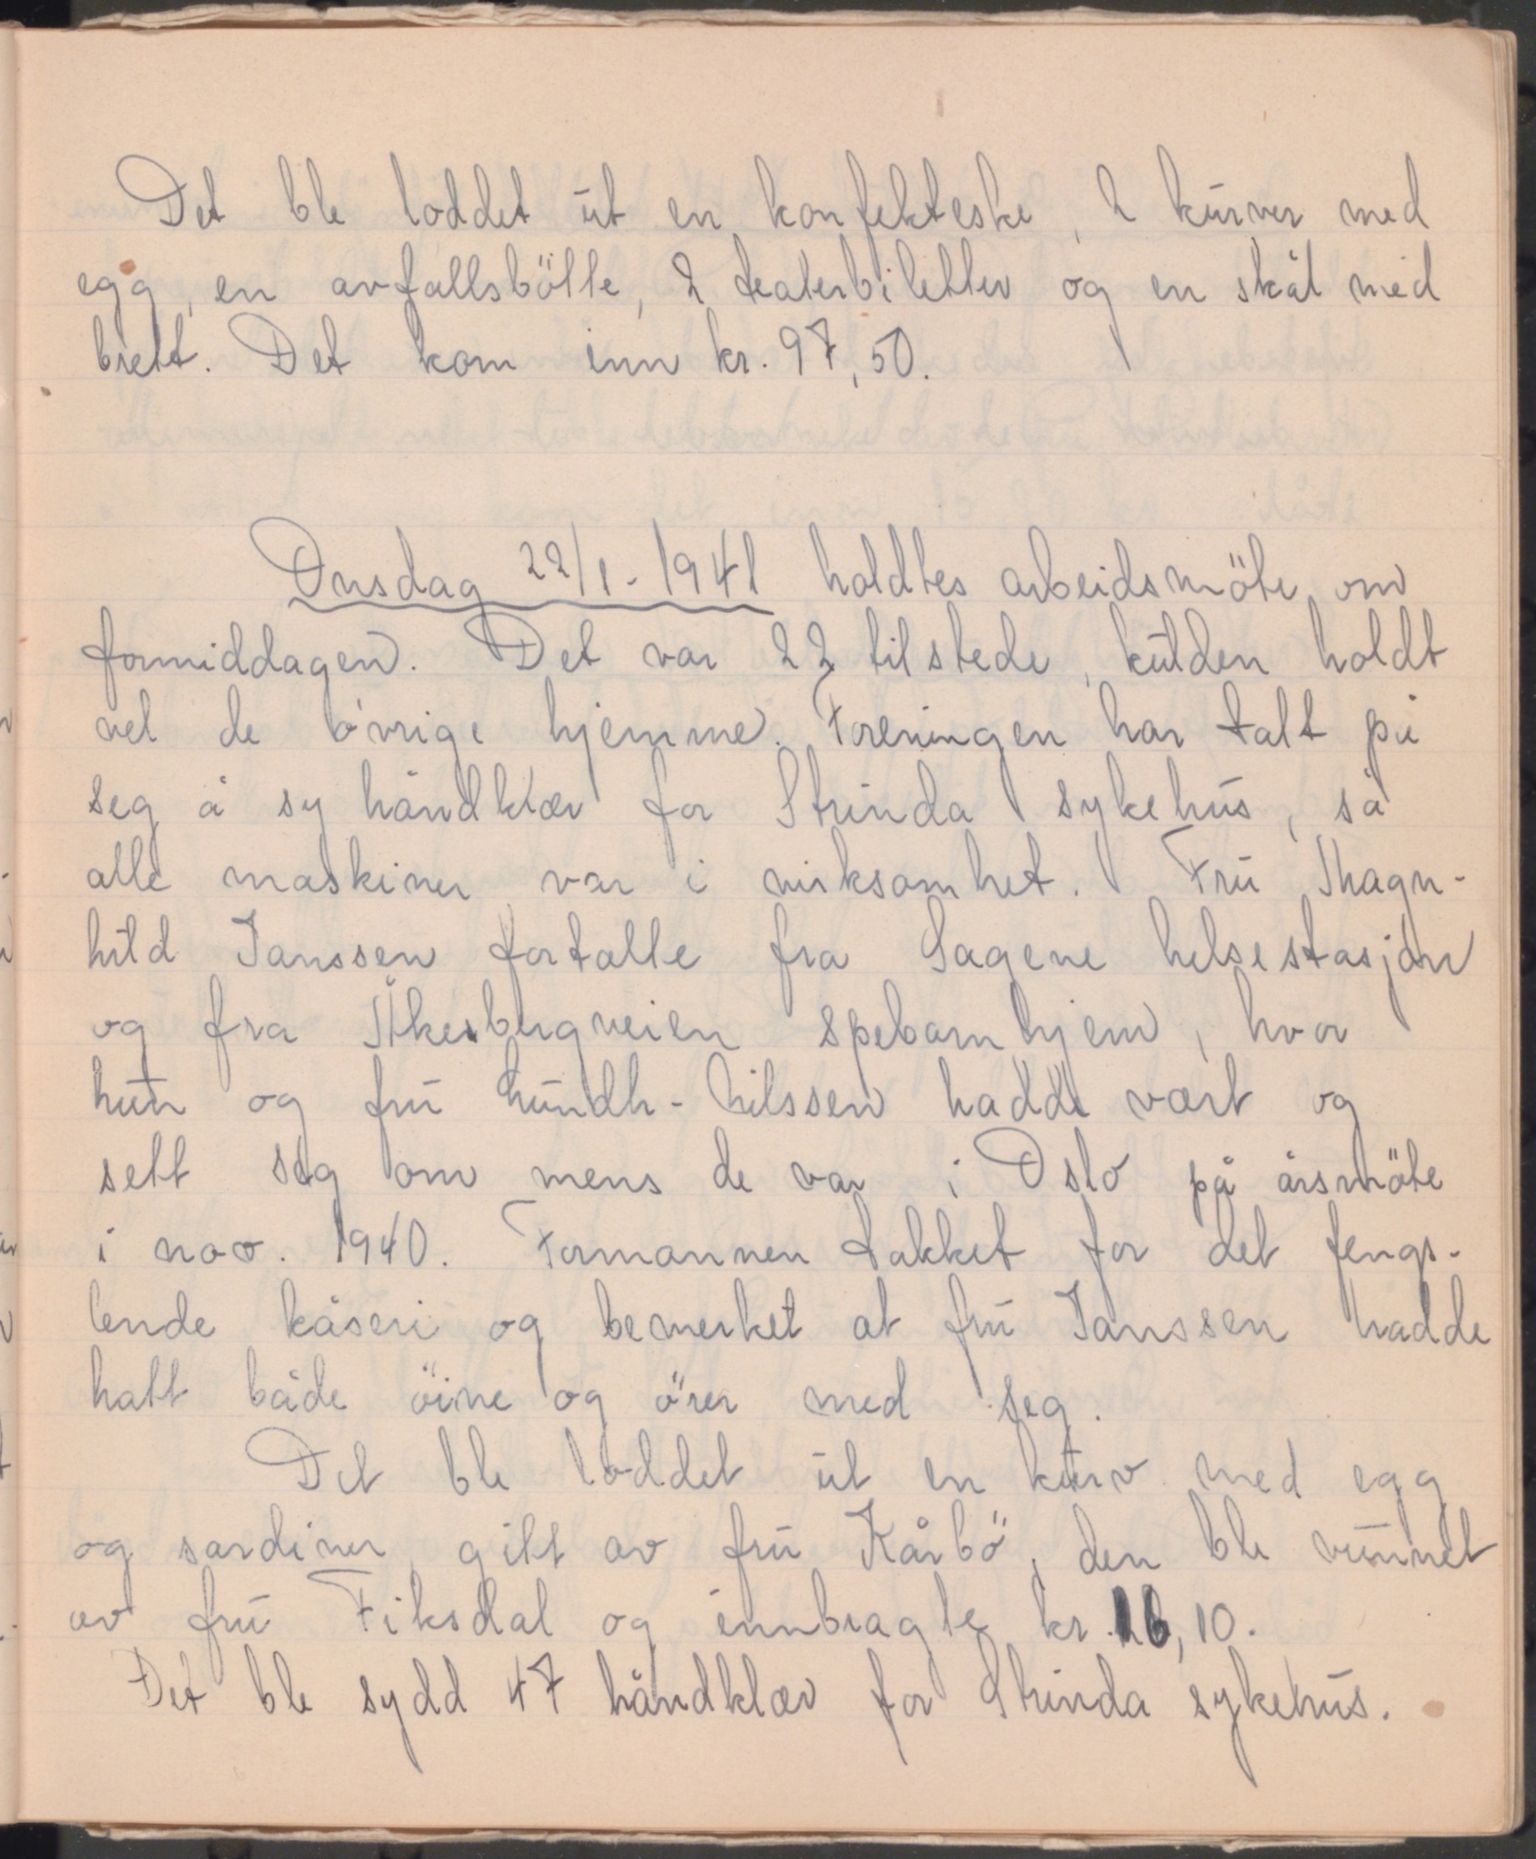 Det ble loddet ut en konfekteske, 2 kurver med
egg, en avfallsbötte, 2 teaterbiletter og en skål med
brett. Det kom inn kr. 97,50.
Onsdag 22/1-1941 holdtes arbeidsmöte om
formiddagen. Det var 22 tilstede, kulden holdt
vel de övrige hjemme. Foreningen har tatt på
seg å sy håndklær for Strinda sykehus, så
alle maskiner var i virksomhet. Fru Magn-
hild Janssen fortalte fra Sagene helsestasjon
og fra Åkerbergveien spebarnhjem, hvor
hun og fru Lundh-Nilssen hadde vært og
sett seg om mens de var i Oslo på årsmöte
i nov. 1940. Formannen takket for det fengs-
lende kåseri og bemerket at fru Janssen hadde
hatt både öine og örer med seg.
Det ble loddet ut en kurv med egg
og sardiner, gitt av fru Kårbö, den ble vunnet
av fru Fiksdal og innbragte kr. 16,10.
Det ble sydd 47 håndklær for Strinda sykehus.